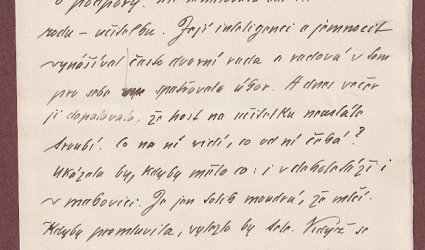 o podpory.
rodu – učitelku. Její inteligenci a jemnocit
vynášíval často dvorní rada a radová v tom
pro sebe spatřovala úhor. A dnes večer
ji dopalovalo, že host na učitelku neustále
troubí. Co na ní vidí, co od ní čeká?
Ukázala by, kdyby měla co: i v dekoletáži i
v mabovici. Je jen tolik moudrá, že mlčí.
Kdyby promluvila, vylezlo by to. Vždyť se